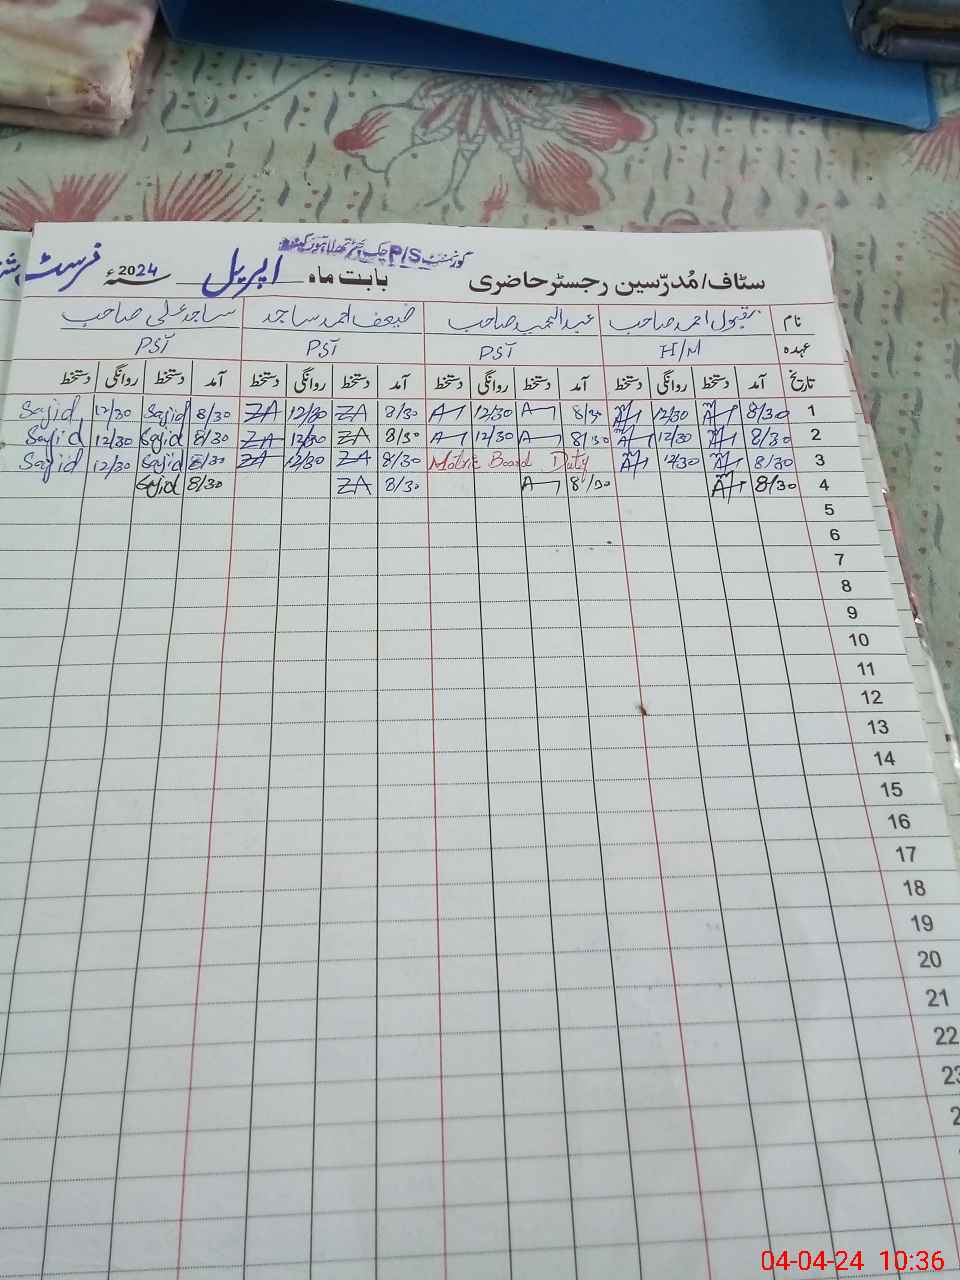 گورنمنٹ P/S چک
سٹاف/مُدرّسین رجسٹر حاضری بابت ماہ اپریل سنہ 2024ء فرسٹ
نام مقبول احمد صاحب عبدالحمید صاحب احمد ساجد ساجد علی صاحب
عہدہ H/M PST PST PST
تاریخ آمد دستخط روانگی دستخط آمد دستخط روانگی دستخط آمد دستخط روانگی دستخط آمد دستخط روانگی دستخط
1 8/30 12/30 8/30 12/30 8/30 ZA 12/30 ZA 8/30 Sajid 12/30 Sajid
2 8/30 12/30 8/30 12/30 8/30 ZA 12/30 ZA 8/30 Sajid 12/30 Sajid
3 8/30 12/30 Matric Board Duty 8/30 ZA 12/30 ZA 8/30 Sajid 12/30 Sajid
4 8/30 8/30 8/30 ZA 8/30 Sajid
5
6
7
8
9
10
11
12
13
14
15
16
17
18
19
20
21
22
23
04-04-24 10:36